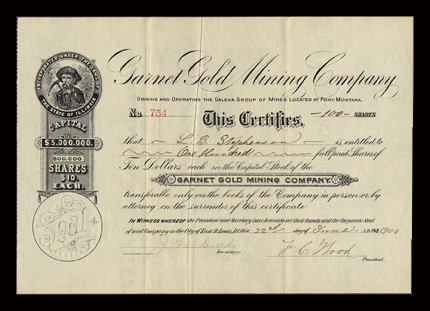 INCORPORATED UNDER THE LAWS OF
THE STATE OF ILLINOIS
CAPITAL
$5,000,000.
500,000
SHARES
$10
EACH.
Garnet Gold Mining Company
OWNING AND OPERATING THE GALENA GROUP OF MINES LOCATED AT PONY, MONTANA.
No. 754 This Certifies, -100- SHARES
that L. B. Stephenson is entitled to
One Hundred full paid Shares of
Ten Dollars each in the Capital Stock of the
GARNET GOLD MINING COMPANY.
transferable only on the books of the Company in person or by
attorney on the surrender of this certificate.
In Witness Whereof, the President and Secretary have hereunto set their hands and the Corporate Seal
of said Company in the City of East St. Louis, Ill. this 22nd day of June A.D. 190
Secretary. F. C. Wood
President.